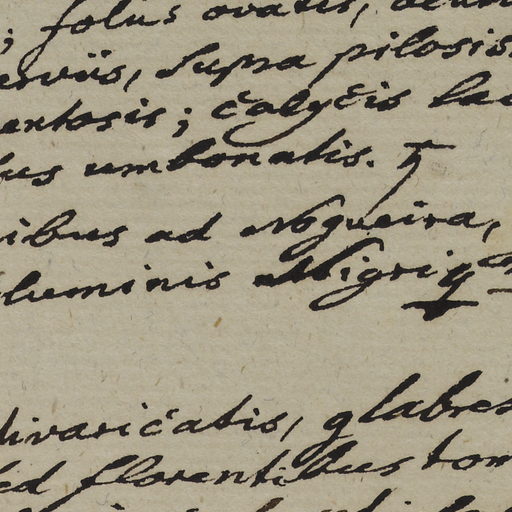 ; foliis ovatis,
erviis, supra pilosis
entosis; calycis lac
bus umbonatis. ♄
ibus ad Nogueira,
luminis Nigri
divaricatis, glabres
ed florentibus tom